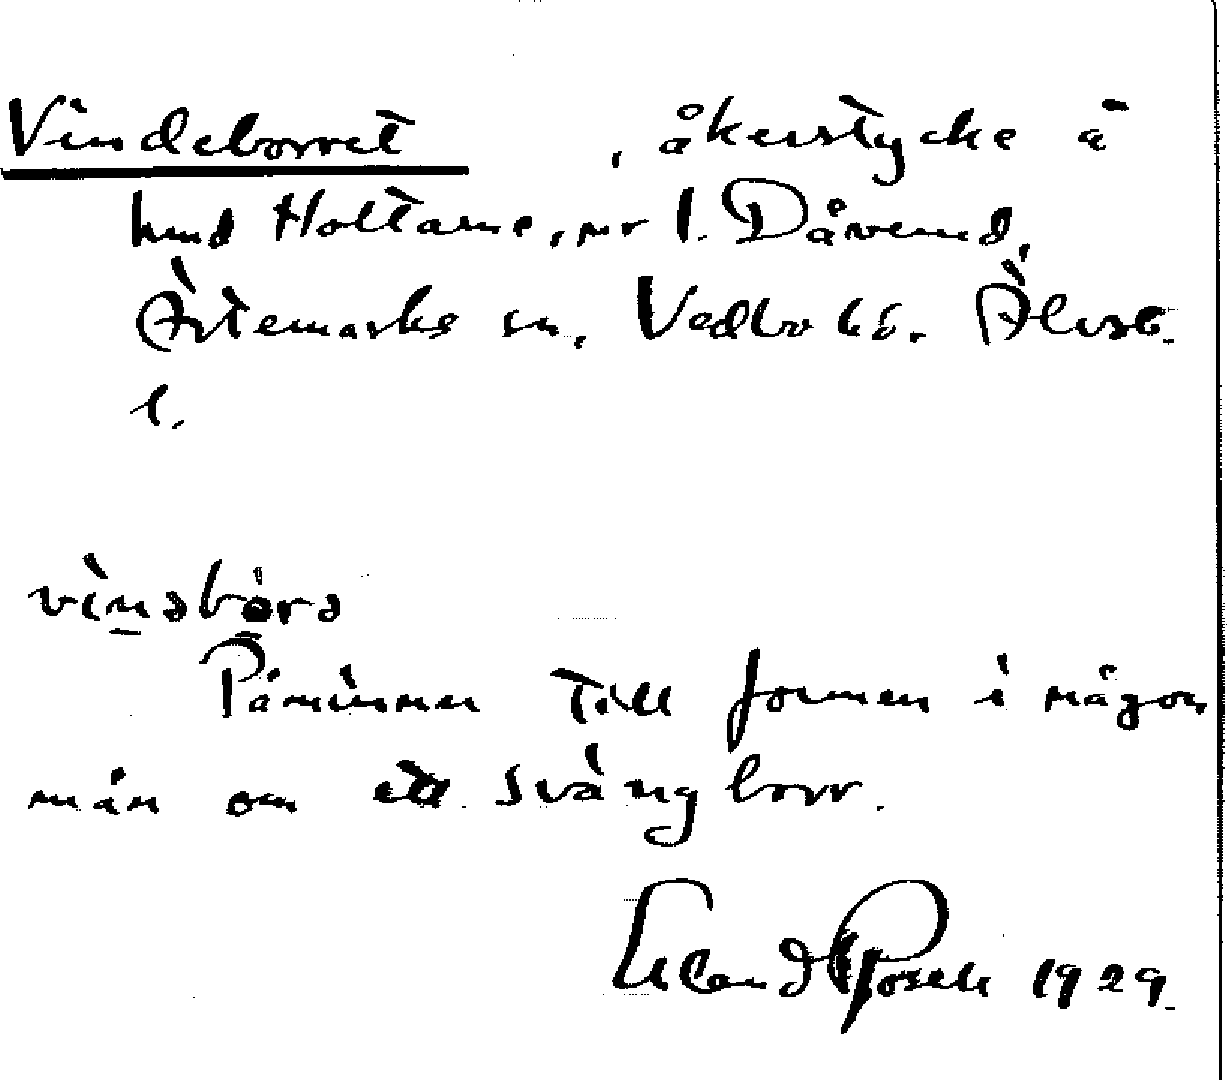 Vindeborret, åkerstycke å
hmd Holtarne, nr 1. Dåverud,
Ärtemarks sn. Vedbo hd. Älvsb.
l.
Påminner till formen i någon
mån om ett svängborr.
Erland Rosell 1929.